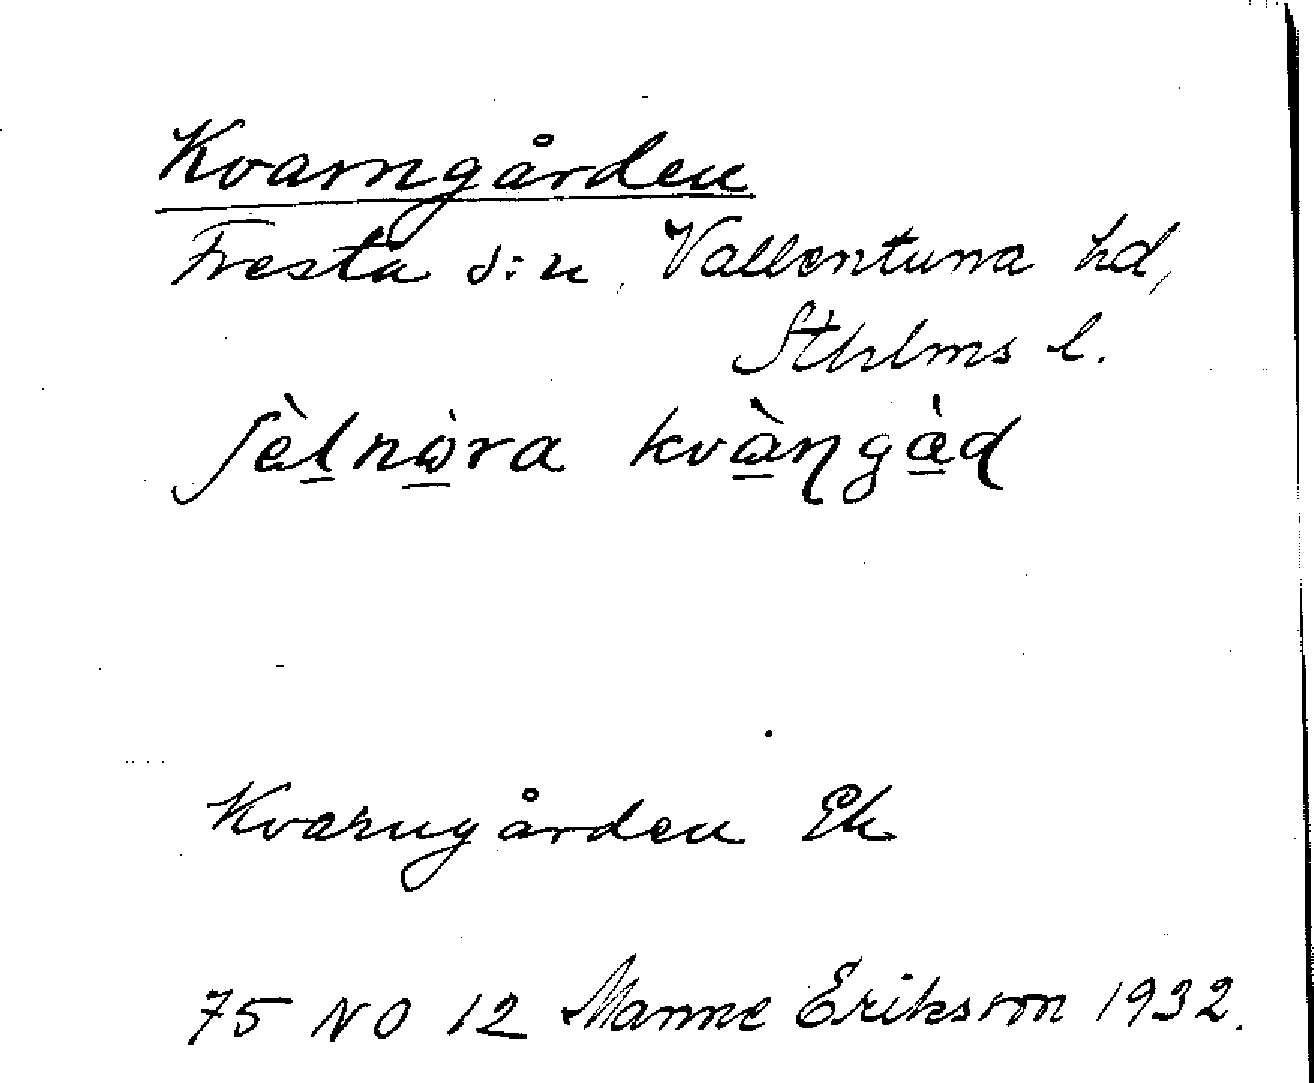 Kvarngården
Fresta s:n, Vallentuna hd,
Sthlms l.
ſèl̲nò̲ra kvà̲ɳgà̲ɖ
Kvarngården Ek
75 NO 12 Manne Eriksson 1932.